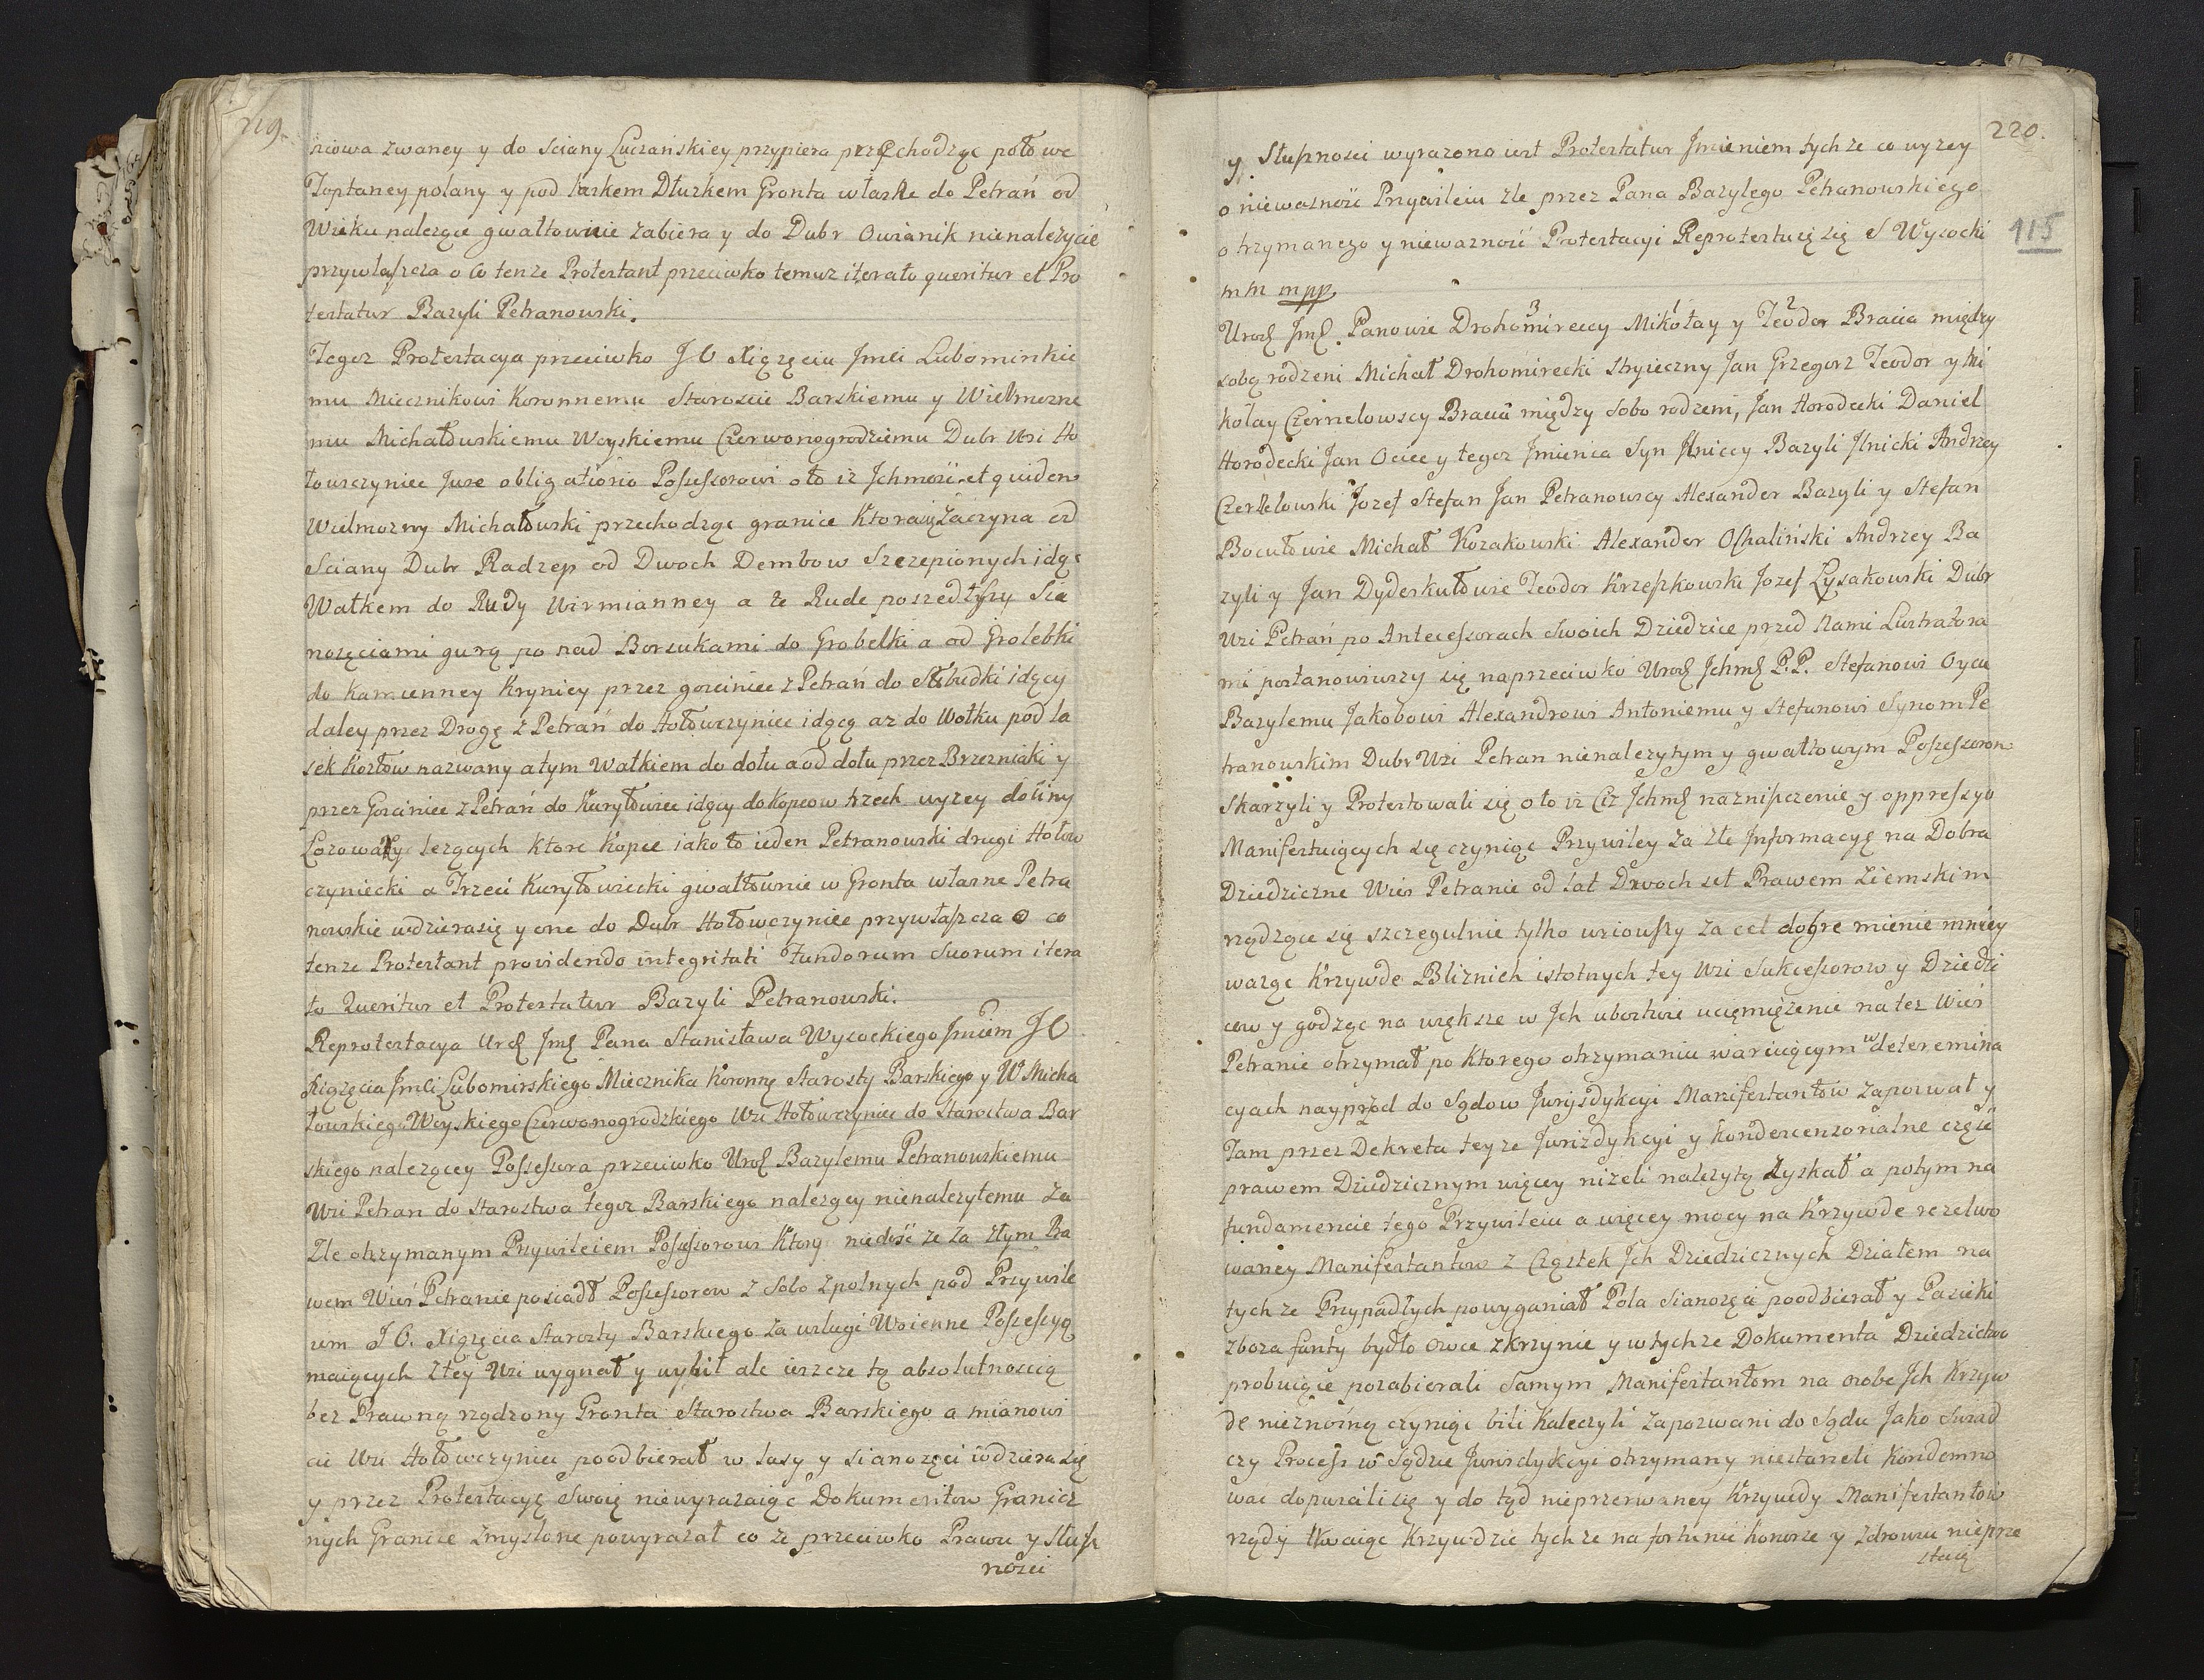 219.
niowa zwaney y do Sciany Luczańskiey przypiera przechodząc połowe
Toptaney polany y pod laskem Dłużkem Gronta własne do Petrań od
Wieku należące gwałtownie zabiera y do Dubr Owsianik nienależycie
przywłaszcza o co tenże Protestant przeciwko temuz iterato queritur et Pro
testatur Bazyli Petranowski.
Tegoz Protestacya przeciwko J O Xiążęciu Jmci Lubomirskie
mu Miecznikowi Koronnemu Staroscie Barskiemu y Wielmozne
mu Michałowskiemu Woyskiemu Czerwonogrodzkiemu Dubr Wsi Ho
łowczyniec Jure obligatorio Possessorowi o to iz Ichmość et quidem
Wielmozny Michałowski przechodząc granice Ktora się Zaczyna od
Sciany Dubr Radzep od Dwoch Dembow Szczepionych idąc
Wałkem do Rudy Wirmianney a ze Rude poszedłszy Sia
nożęciami gurą po nad Borsukami do Grobelki a od Grolebki
do Kamienney Krynicy przez gosciniec z Petrań do Słobudki idący
daley przez Drogę z Petrań do Hołowczyniec idącą az do Wołku pod la
sek Kozłow nazwany a tym Wałkiem do dołu a od dołu przez Brzezniaki y
przez Gosciniec z Petrań do Kuryłowiec idący do Kopcow trzech wyzey doliny
Lozowaty lezących Ktore Kopce iako to ieden Petranowski drugi Hołow
czyniecki a Trzeci Kuryłowiecki gwałtownie w Gronta własne Petra
nowskie wdziera się y one do Dubr Hołowczyniec przywłaszcza o co
tenze Protestant providendo integritati Fundorum Suorum itera
to Queritur et Protestatur Bazyli Petranowski.
Reprotestacya Uroζ Jmζ Pana Stanisława Wysockiego Jmiem J O
Xiązęcia Jmci Lubomirskiego Miecznika Koronnę Starosty Barskiego y W Micha
łowskiego Woyskiego Czerwonogrodzkiego Wsi Hołowczyniec do Starostwa Bar
skiego nalezącey Possessora przeciwko Uroζ Bazylemu Petranowskiemu
Wsi Petran do Starostwa tegoz Barskiego nalezący nienalezytemu za
Zle otrzymanym Przywileiem Possessorowi Ktory niedość ze za złym Pra
wem Wieś Petranie posiadł Possessorow z Sobo spolnych pod Przywile
iem J O. Xiązęcia Starosty Barskiego za usługi Woienne Possessyą
maiących z tey Wsi wygnał y wybił ale ieszcze tą absolutnoscią
bez Prawną rządzony Gronta Starostwa Barskiego a mianowi
cie Wsi Hołowczyniec poodbierał w lasy y sianożęci wdziera się
y przez Protestacyą Swoią niewyrazaiąc Dokumentow Granicz
nych Granice zmyslone powyrazał co ze przeciwko Prawu y Słusz
nosci
220.
115
y Słusznosci wyrazono iest Protestatur Jmieniem tychze co wyzey
o niewaznośći Przywileiu zle przez Pana Bazylego Petranowskiego
otrzymanego y niewaznośći Protestacyi Reprotestuię się S Wysocki
mm mpp.
Uroζ Jmζ Panowie Drohomireccy Mikołay y Teodor Bracia między
1 2 3
sobą rodzeni Michał Drohomirecki Stryieczny Jan Grzegorz Teodor y Mi
kołay Czernelowscy Bracia między Sobo rodzeni, Jan Horodecki Daniel
Horodecki Jan Ociec y tegoz Jmienia Syn Jlniccy Bazyli Jlnicki Andrzey
Czerlelowski Jozef Stefan Jan Petranowscy Alexander Bazyli y Stefan
Bocułowie Michał Kozakowski Alexander Olszaliński Andrzey Ba
zyli y Jan Dyderkułowie Teodor Krzeszkowski Jozef Łysakowski Dubr
Wsi Petrań po Antecessorach Swoich Dziedzice przed Nami Lustratora
mi postanowiwszy się naprzeciwko Uroζ Jchmζ P.P. Stefanowi Oycu
Bazylemu Jakobowi Alexandrowi Antoniemu y Stefanowi Synom Pe
tranowskim Dubr Wsi Petran nienalezytym y gwałtowym Possessorom
Skarzyli y Protestowali się o to iz Ciz Jchmζ na zniszczenie y oppressyo
Manifestuiących się czyniąc Przywiley za złe Jnformacyę na Dobra
Dziedziczne Wieś Petranie od lat Dwoch set Prawem Ziemskim
rządzące się szczegulnie tylko wziowszy za cel dobre mienie mniey
waząc Krzywde Bliznich istotnych tey Wsi Sukcessorow y Dziedzi
cow y godząc na większe w Jch ubostwie uciemiężenie na tez Wieś
Petranie otrzymał po Ktorego otrzymaniu wariuiącym w determina
cyach nayprzod do Sądow Juryzdykcyi Manifestantow Zapozwał y
Tam przez Dekreta teyze Jurizdykcyi y Kondescenzonalne część
prawem Dziedzicznym więcey nizeli nalezytą zyskał a potym na
fundamencie tego Przywileiu a więcey mocy na Krzywde rezelwo
waney Manifestantow z Cząstek Jch Dziedzicznych Działem na
tychze Przypadłych powyganiał Pola Sianożęci poodbierał y Pasieki
zboza fanty bydło owce zkrzynie y w tychze Dokumenta Dziedzictwo
probuiące pozabierali Samym Manifestantom na osobe Jch Krzyw
de nieznośną czyniąc bili Kaleczyli Zapozwani do Sądu Jako Swiad
czy Process w Sądzie Jurisdykcyi otrzymany niestaneli Kondemno
wac dopuscili się y do tąd nieprzerwaney Krzywdy Manifestantow
rządy trwaiąc Krzywdzic tychze na fortunie honorze y Zdrowiu nieprze
staią